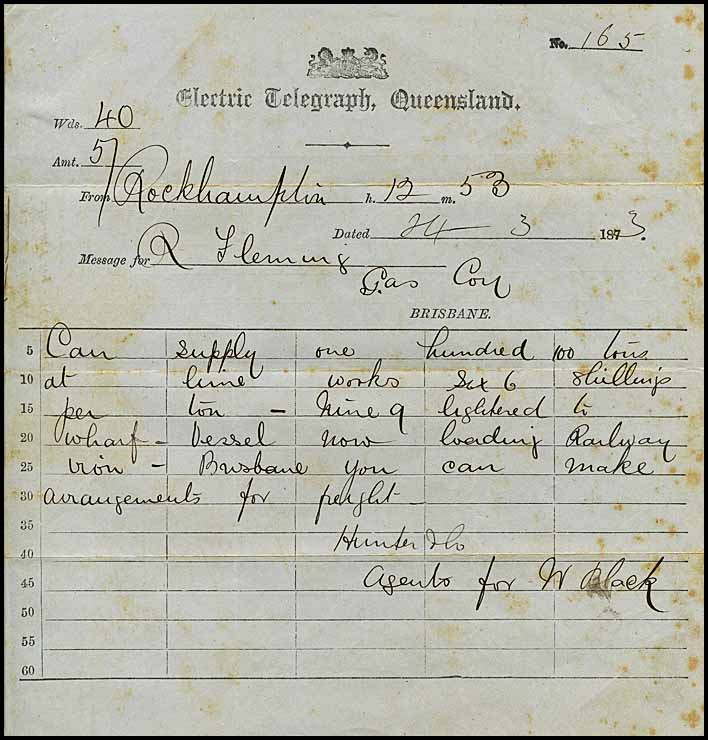 No. 165
Electric Telegraph, Queensland.
Wds. 40
Amt. 5/
From Rockhampton h. 12 m. 53
Dated 24 3 1873.
Message for R Fleming
Gas Coy
BRISBANE.
5 Can supply one hundred 100 tons
10 at lime works six 6 shillings
15 per ton - Nine 9 lightered to
20 wharf - Vessel now loading Railway
25 iron - Brisbane you can make
30 arrangements for freight -
35 Hunter & Co
40
45 Agents for W Black
50
55
60